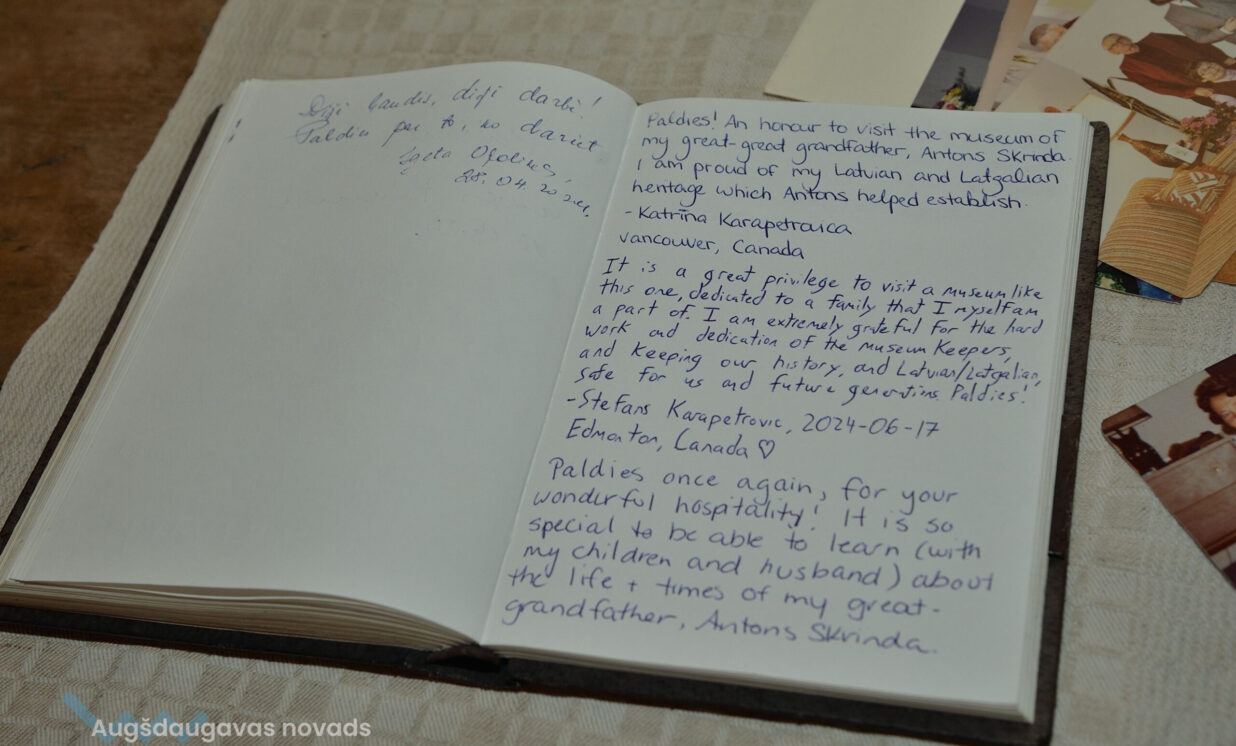 Diži ļaudis, diži darbi!
Paldies par to, ko dariet
28. 04. 2024.
Paldies! An honour to visit the museum of
my great-great grandfather, Antons Skrinda.
I am proud of my Latvian and Latgalian
heritage which Antons helped establish.
- Katrīna Karapetrovica
Vancouver, Canada
It is a great privilege to visit a museum like
this one, dedicated to a family that I myself am
a part of. I am extremely grateful for the hard
work and dedication of the museum keepers,
and keeping our history, and Latvian/Latgalian,
safe for us and future generations. Paldies!
- Stefans Karapetrovic, 2024-06-17
Edmonton, Canada ♡
Paldies once again, for your
wonderful hospitality! It is so
special to be able to learn (with
my children and husband) about
the life + times of my great-
grandfather, Antons Skrinda.
Augšdaugavas novads